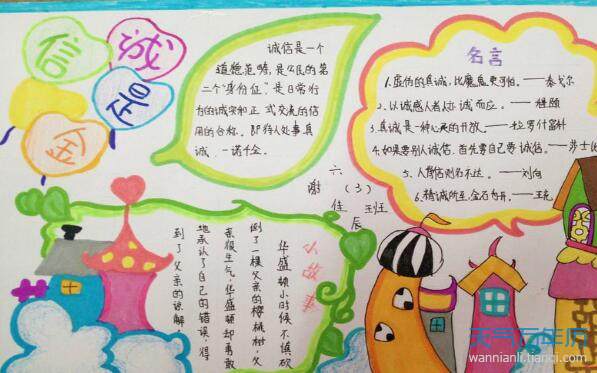 诚
信
是
金
诚信是一个
道德范畴,是公民的第
二个"身份证"是日常行
为的诚实和正式交流的信
用的合称。即待人处事真
诚、一诺千金。
名言
1.虚伪的真诚,比魔鬼更可怕。——泰戈尔
2.以诚感人者,人亦诚而应。——程颐
3.真诚是一种心灵的开放。——拉罗什富科
4.如果要别人诚信,首先要自己要诚信。——莎士比
5.人背信则名不达。——刘向
6.精诚所至,金石为开。——王充
六(3)班
谢佳辰
小故事
华盛顿小时候不慎砍
倒了一棵父亲的樱桃树,父
亲很生气,华盛顿却勇敢
地承认了自己的错误,得
到了父亲的谅解
天气万年历
wannianli.tianqi.com